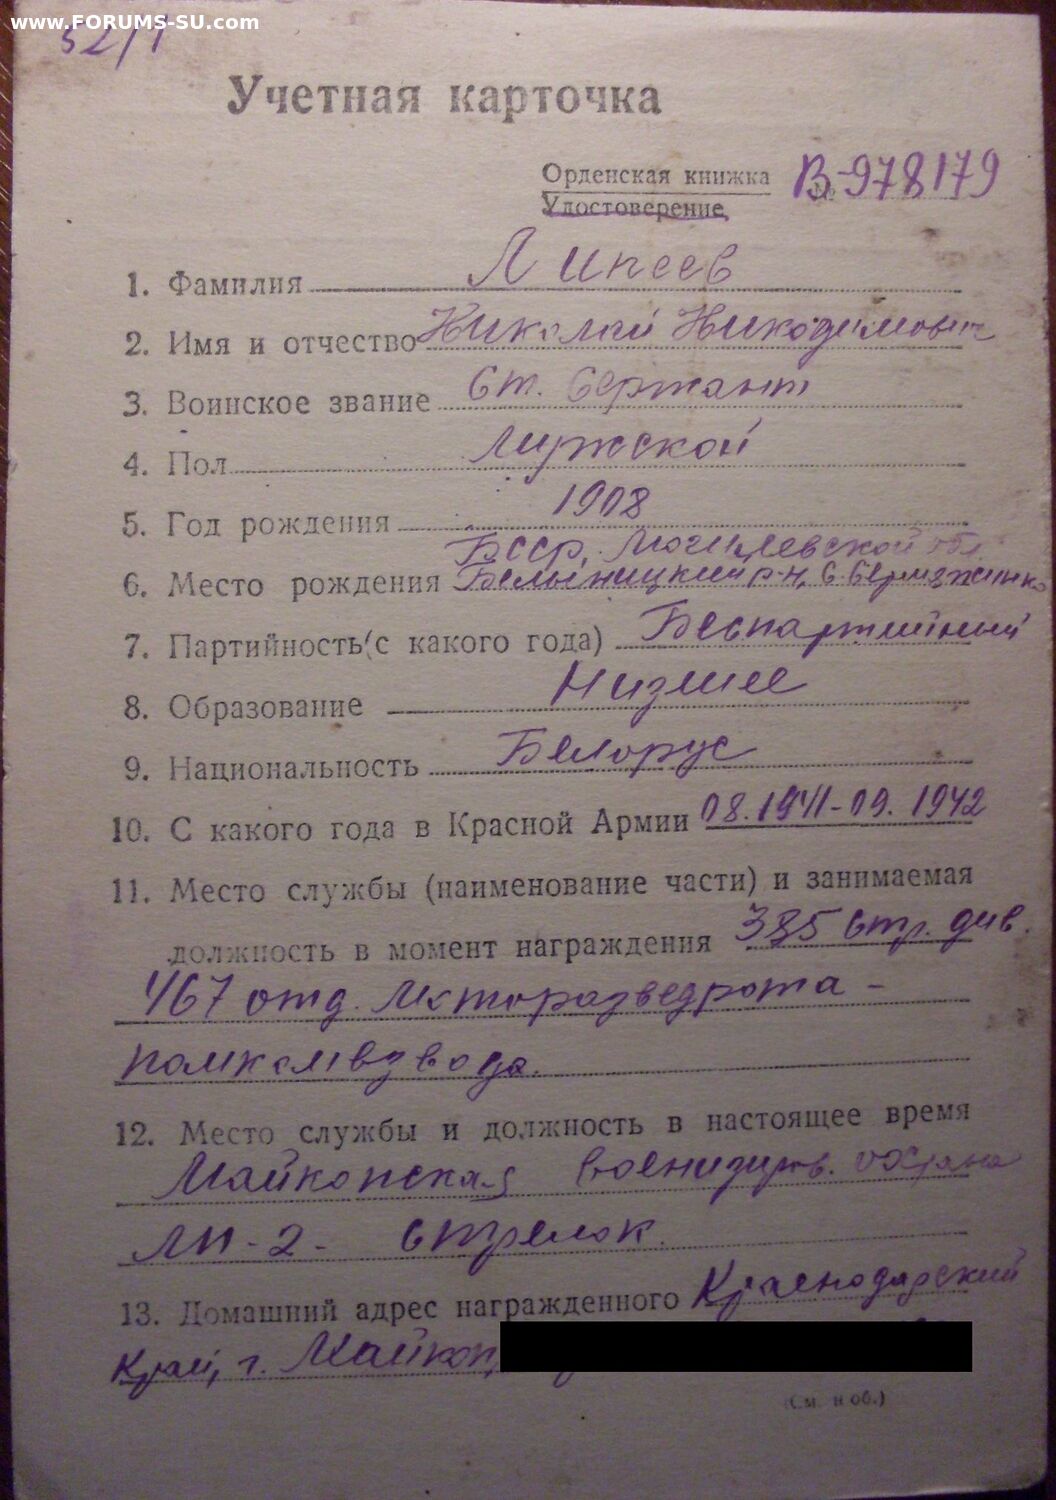 www.FORUMS-SU.com
52/1
Учетная карточка
Орденская книжка № В-978179
Удостоверение
1. Фамилия Липеев
2. Имя и отчество Николай Никодимович
3. Воинское звание Ст. Сержант
4. Пол Мужской
5. Год рождения 1908
БССР, Могилевской обл.
6. Место рождения Белыничский р-н, с.
7. Партийность (с какого года) Беспартийный
8. Образование Низшее
9. Национальность Белорус
10. С какого года в Красной Армии 08.1941-09.1942
11. Место службы (наименование части) и занимаемая
должность в момент награждения 385 стр. див.
467 отд. Моторазведрота -
помкомвзвода.
12. Место службы и должность в настоящее время
Майкопская военизиров. охрана
ЛП-2- стрелок.
13. Домашний адрес награжденного Краснодарский
Край, г. Майкоп,
(См. на об.)